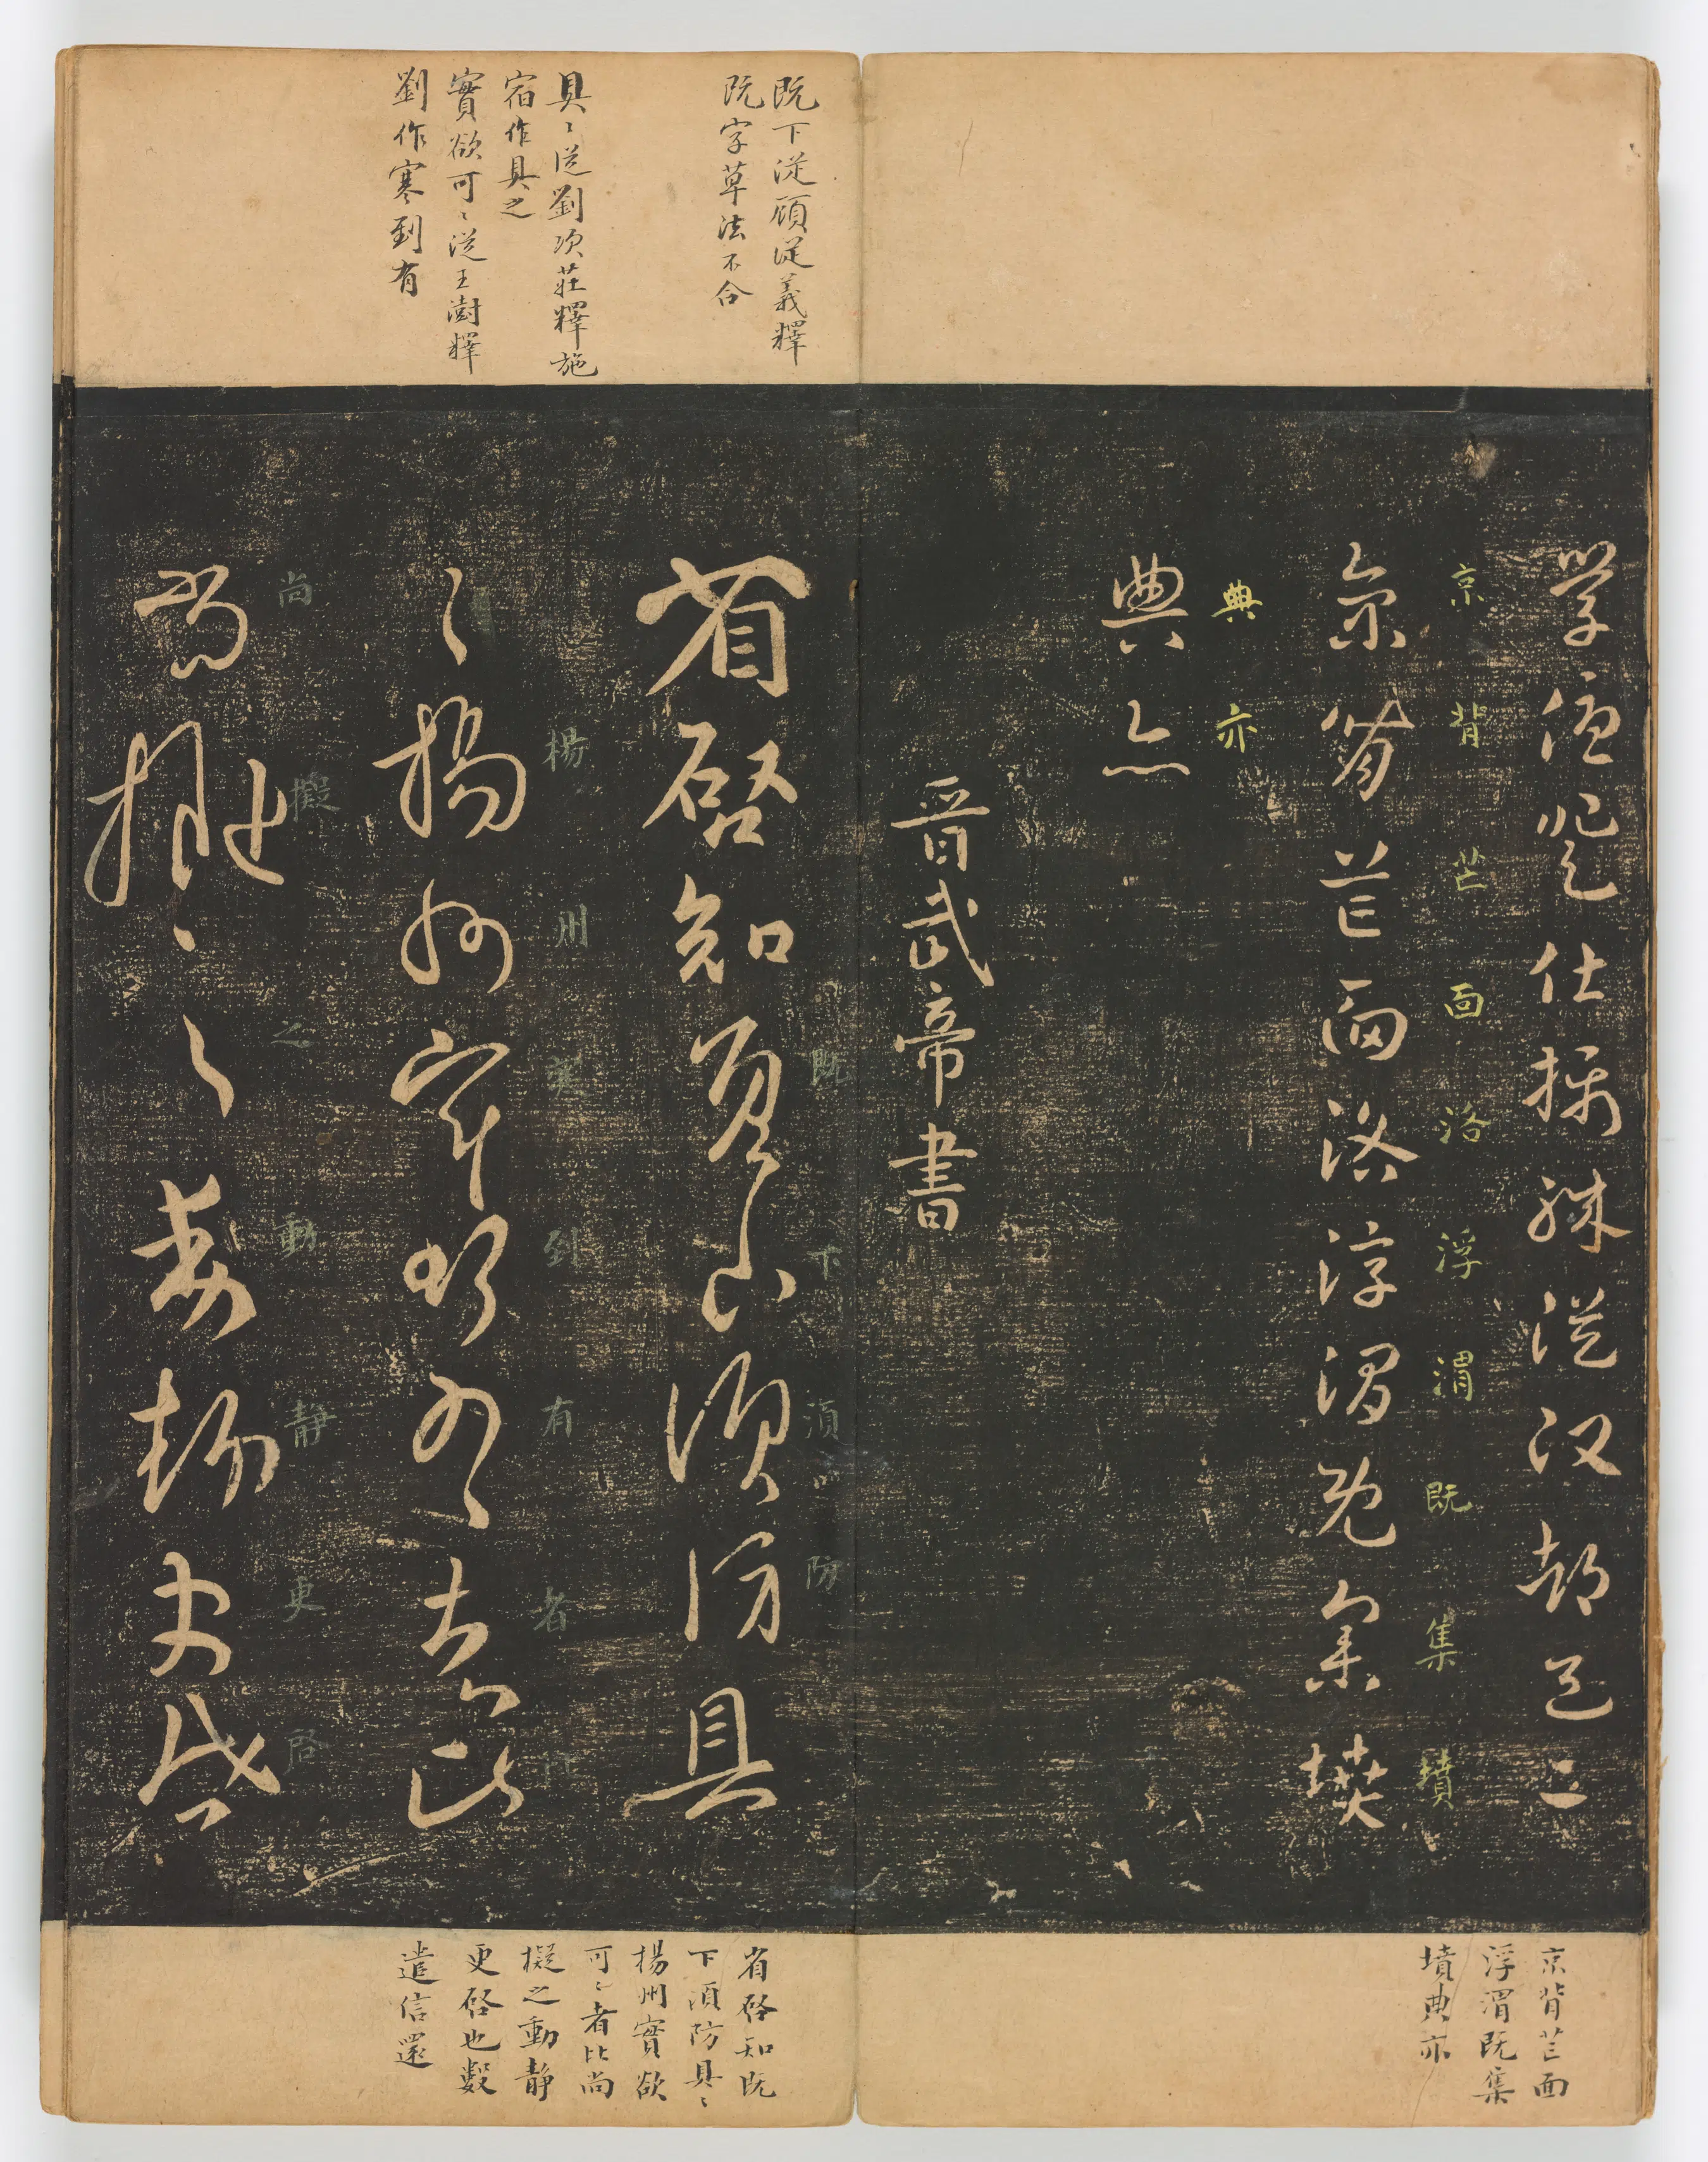 学優登仕攝職從政都邑二
京背芒面洛浮渭既集墳
京背芒面洛浮渭既集墳
典亦
典亦
晉武帝書
既下從顧從義釋
既字草法不合
省啓知既下須防具
既下須防
具〻從劉次莊釋施
宿作具之
實欲可〻從王澍釋
劉作寒到有
〻楊州實欲可〻者比
楊州寒到有者比
尚擬〻之動静更啓
尚擬之動静更啓
京背芒面
浮渭既集
墳典亦
省啓知既
下須防具〻
楊州實欲
可〻者比尚
擬之動静
更啓也數
遣信還